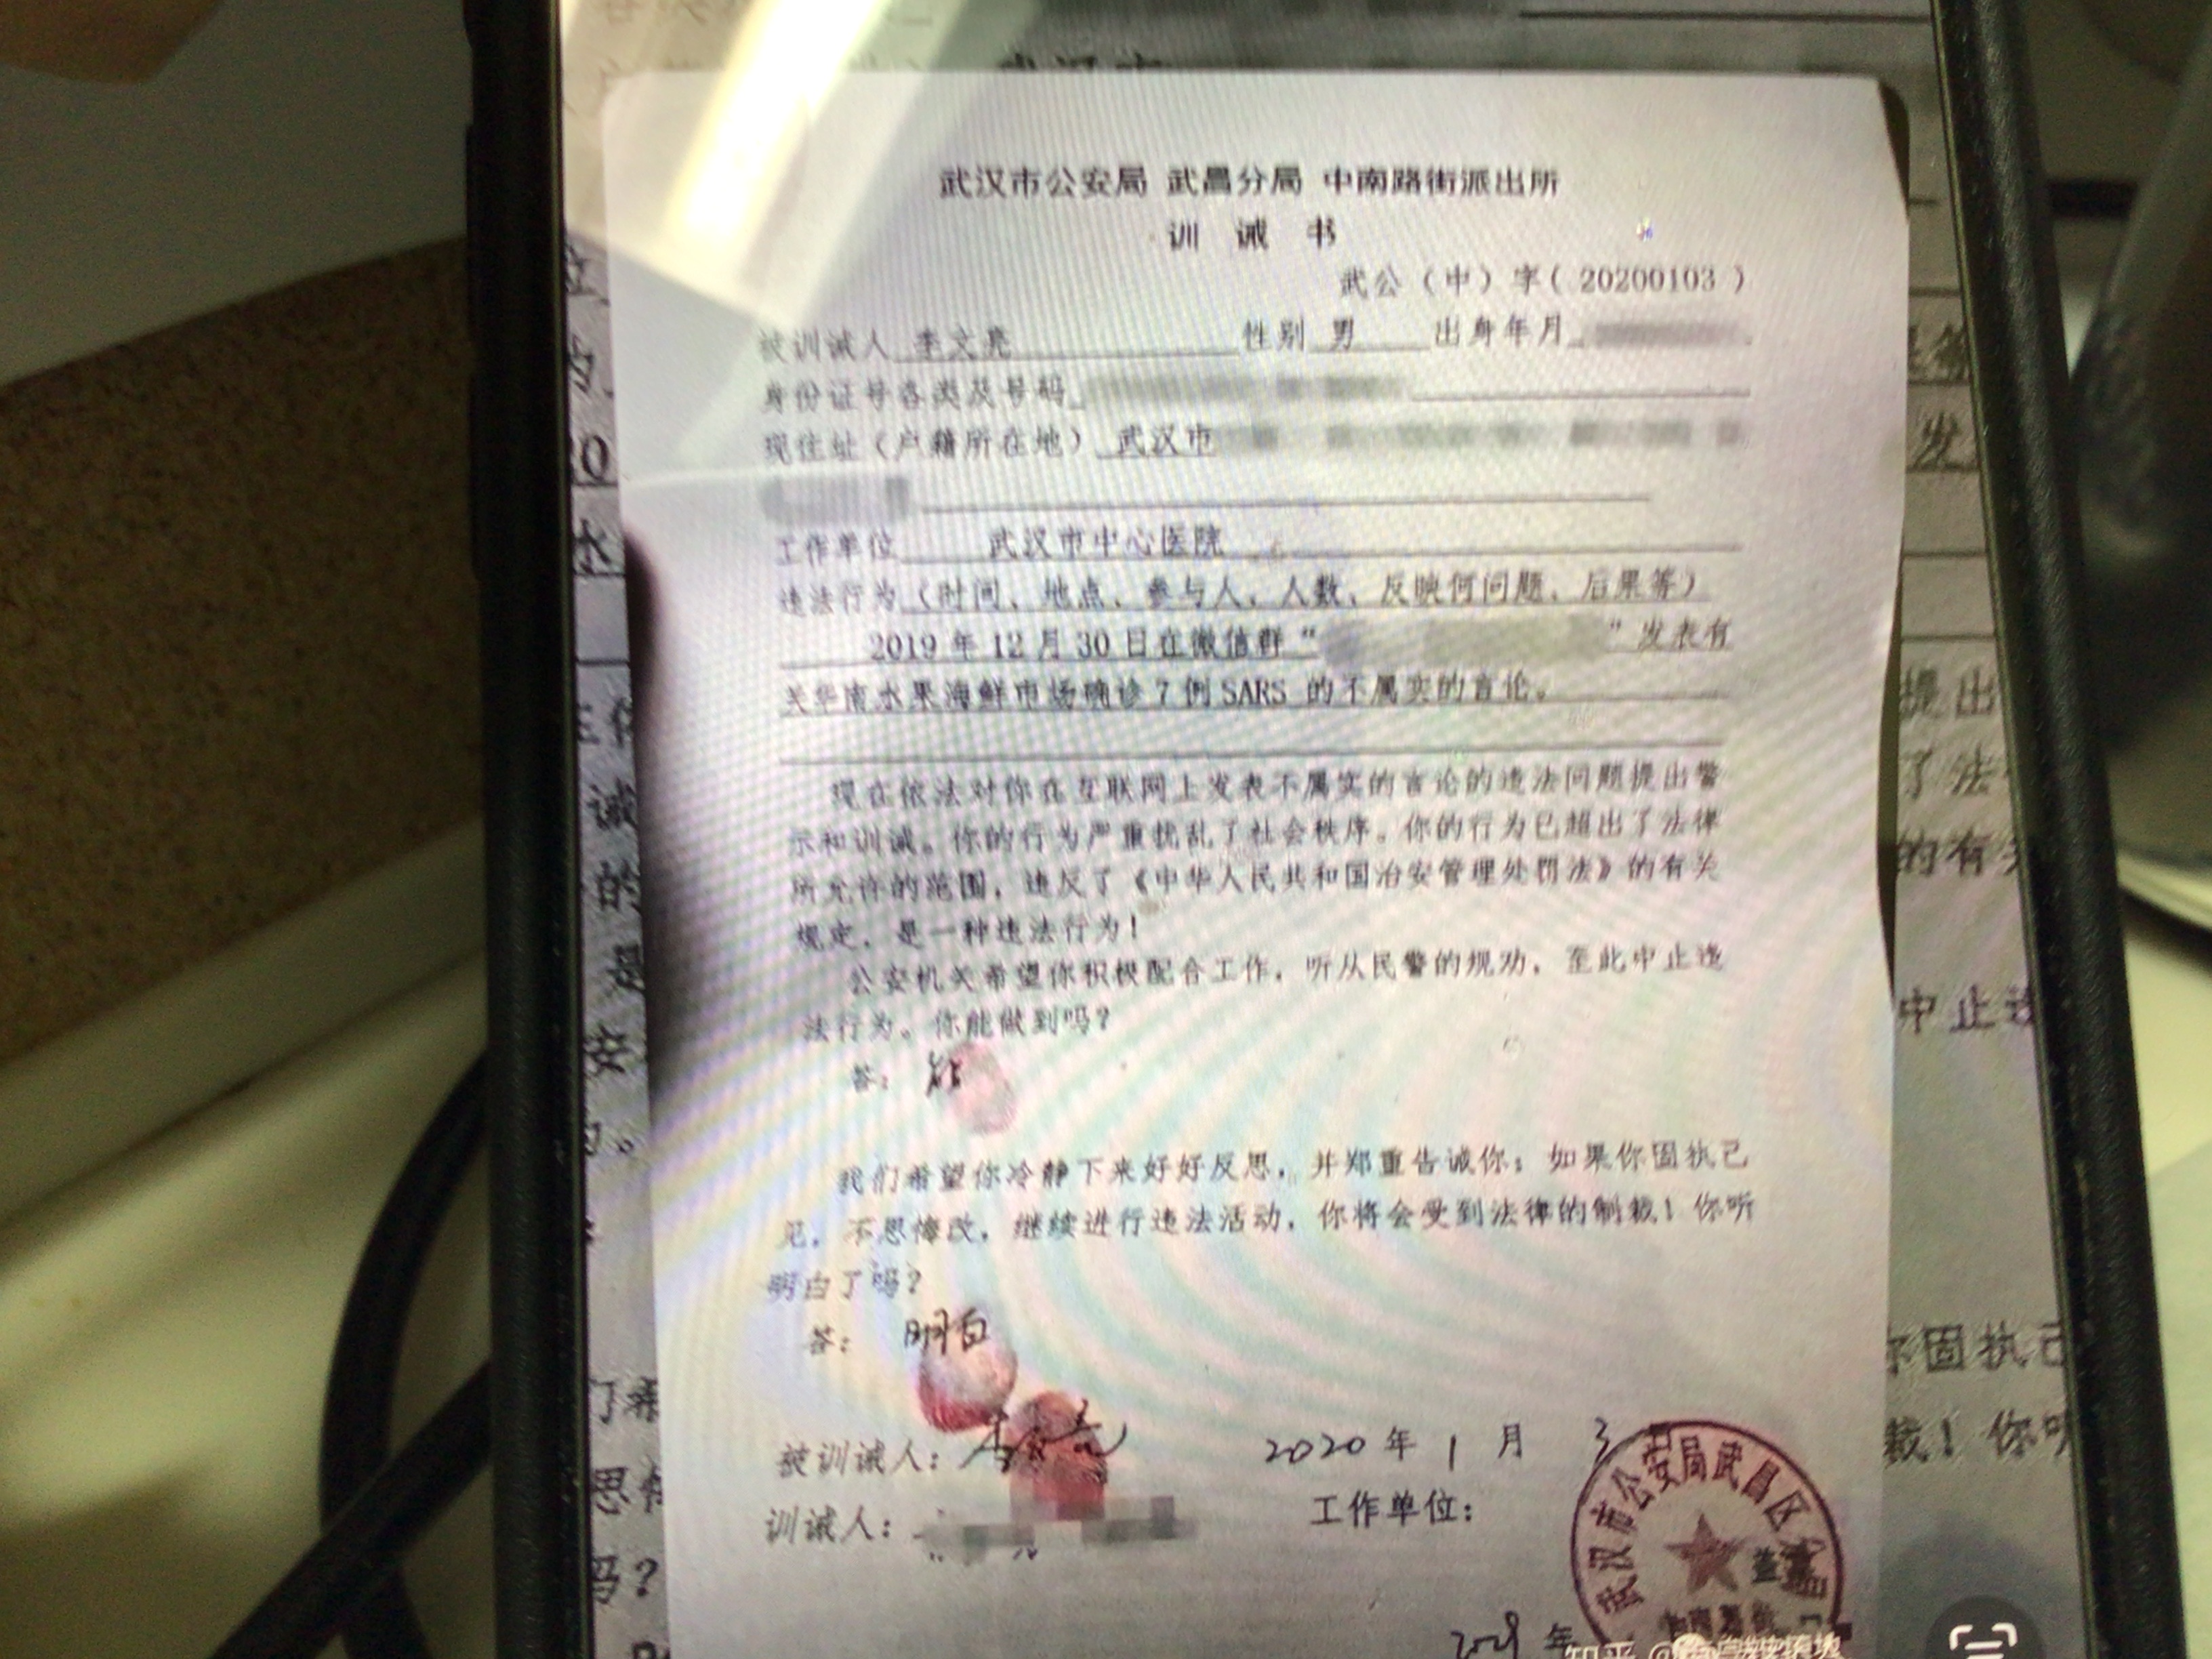 武汉市公安局 武昌分局 中南路街派出所
训 诫 书
武公（中）字（ 20200103 ）
被训诫人 李文亮 性别 男 出身年月
身份证号各类及号码
现住址（户籍所在地）武汉市
工作单位 武汉市中心医院
违法行为（时间、地点、参与人、人数、反映何问题、后果等）
2019 年 12 月 30 日在微信群“ ”发表有
关华南水果海鲜市场确诊 7 例 SARS 的不属实的言论。
现在依法对你在互联网上发表不属实的言论的违法问题提出警
示和训诫。你的行为严重扰乱了社会秩序。你的行为已超出了法律
所允许的范围，违反了《中华人民共和国治安管理处罚法》的有关
规定，是一种违法行为！
公安机关希望你积极配合工作，听从民警的规劝，至此中止违
法行为。你能做到吗？
答：能
我们希望你冷静下来好好反思，并郑重告诫你：如果你固执己
见，不思悔改，继续进行违法活动，你将会受到法律的制裁！你听
明白了吗？
答：明白
被训诫人：李文亮 2020 年 1 月 3
训诫人： 工作单位：
武汉市公安局武昌区分
年
知乎